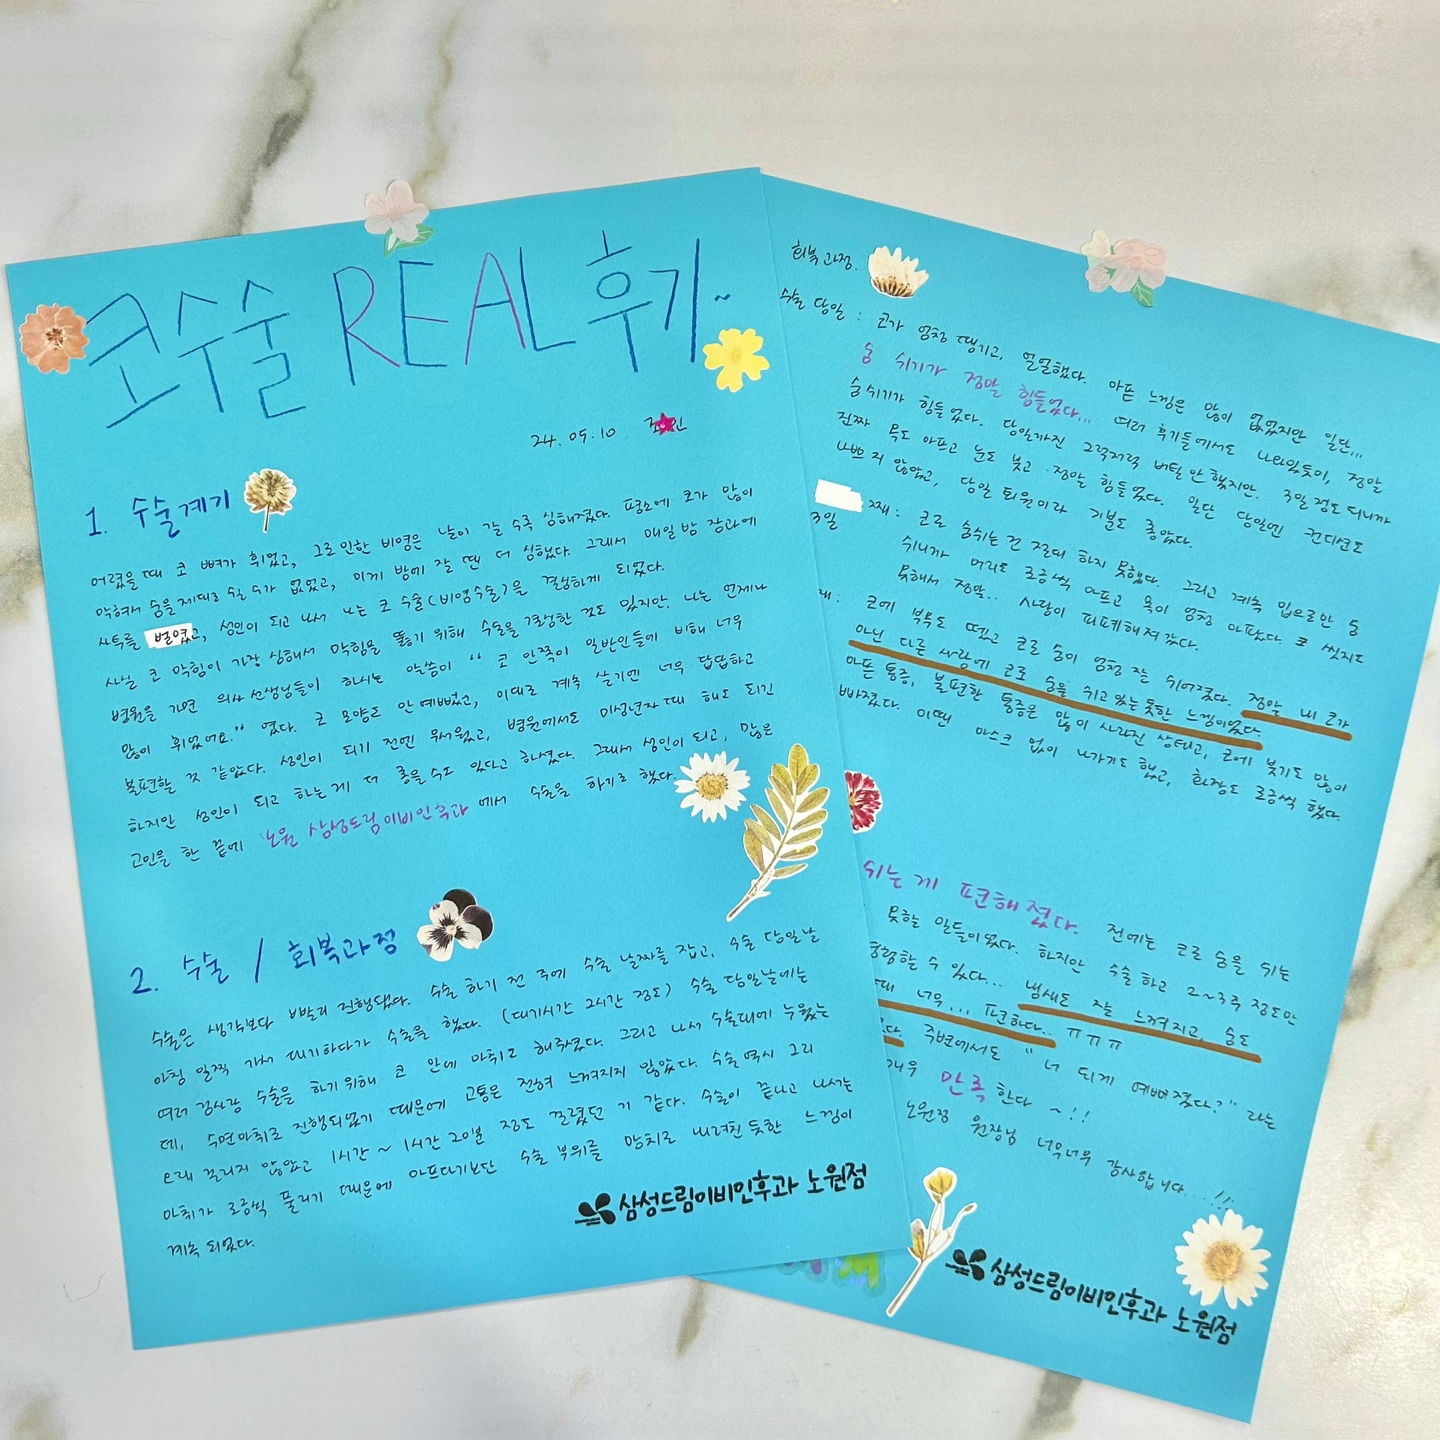 코수술 REAL 후기~
24.05.10
1. 수술계기
어렸을 때 코 뼈가 휘었고, 그로 인한 비염은 날이 갈 수록 심해졌다. 평소에 코가 많이
막혀서 숨을 제대로 쉴 수가 없었고, 이게 밤에 잘 땐 더 심했다. 그래서 매일 밤 잠과에
사투를 벌였고, 성인이 되고 나서 나는 코 수술(비염수술)을 결정하게 되었다.
사실 코 막힘이 가장 심해서 막힘을 뚫기 위해 수술을 결정한 것도 있지만, 나는 언제나
병원을 가면 의사 선생님들이 하시는 말씀이 "코 안쪽이 일반인들에 비해 너무
많이 휘었어요." 였다. 코 모양도 안 예뻤고, 이대로 계속 살기엔 너무 답답하고
불편할 것 같았다. 성인이 되기 전엔 무서웠고, 병원에서도 미성년자 때 해도 되긴
하지만 성인이 되고 하는게 더 좋을 수도 있다고 하셨다. 그래서 성인이 되고, 많은
고민을 한 끝에 '노원 삼성드림이비인후과 에서 수술을 하기로 했다.
2. 수술 / 회복과정
수술은 생각보다 빨리 진행됐다. 수술 하기 전 주에 수술 날짜를 잡고, 수술 당일날
아침 일찍 가서 대기하다가 수술을 했다. (대기시간 2시간 정도) 수술 당일날에는
여러 검사랑 수술을 하기 위해 코 안에 마취도 해주셨다. 그리고 나서 수술대에 누웠는
데, 수면마취로 진행되었기 때문에 고통은 전혀 느껴지지 않았다. 수술 역시 그리
오래 걸리지 않았고 1시간 ~ 1시간 20분 정도 걸렸던 거 같다. 수술이 끝나고 나서는
마취가 조금씩 풀리기 때문에 아프다기보단 수술 부위를 망치로 내려친 듯한 느낌이
계속 되었다.
삼성드림이비인후과 노원점
회복과정.
수술 당일 : 코가 엄청 땡기고, 얼얼했다. 아픈 느낌은 많이 없었지만 일단...
숨 쉬기가 정말 힘들었다... 여러 후기들에서도 나와있듯이, 정말
숨쉬기가 힘들었다. 당일까진 그럭저럭 버틸만 했지만. 3일 정도 되니까
진짜 목도 아프고 눈도 붓고 정말 힘들었다. 일단 당일엔 컨디션도
나쁘지 않았고, 당일 퇴원이라 기분도 좋았다.
3일 째 : 코로 숨쉬는 건 절대 하지 못했다. 그리고 계속 입으로만 숨
쉬니까 머리도 조금씩 아프고 목이 엄청 아팠다. 코 씻지도
못해서 정말.. 사람이 피폐해져갔다.
째 : 코에 부목도 뗐고 코로 숨이 엄청 잘 쉬어졌다. 정말 내 코가
아닌 다른 사람에 코로 숨을 쉬고 있는 듯한 느낌이었다.
아픈 통증, 불편한 통증은 많이 사라진 상태고, 코에 붓기도 많이
빠졌다. 이땐 마스크 없이 나가기도 했고, 화장도 조금씩 했다.
쉬는 게 편해졌다. 전에는 코로 숨을 쉬는
못하는 일들이었다. 하지만 수술 하고 2~3주 정도만
경험할 수 있다... 냄새도 잘 느껴지고, 숨도
때 너무... 편하다.. ㅠㅠㅠ
주변에서도 "너 되게 예뻐졌다?" 라는
매우 만족한다~!!
노원점 원장님 너무너무 감사합니다...!!
삼성드림이비인후과 노원점